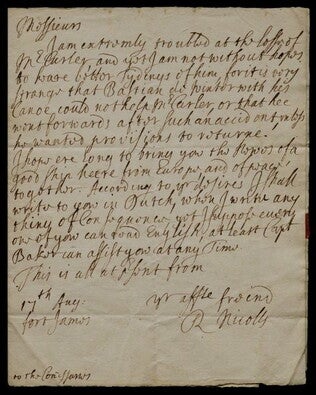 Messieurs
I am extremly troubled at the losse of
Mr Curler, and yet I am not without hopes
to heare better tydings of him, for it is very
strange that Bastian de Winter with his
Canoe could not help Mr Curler, or that hee
went forwards after such an accident unless
he wanted provisions to returne.
I hope ere long to bring you the newes of a
good ship heere from Europe, and of peace
together. According to yr desires I shall
write to you in Dutch, when I write any
thing of Consequence, yet I suppose every
one of you can read English, at least Capt
Baker can assist you at any Time
This is all at psent from
yr affte freind
R Nicolls
17th Aug:
fort James
to the Comissarys